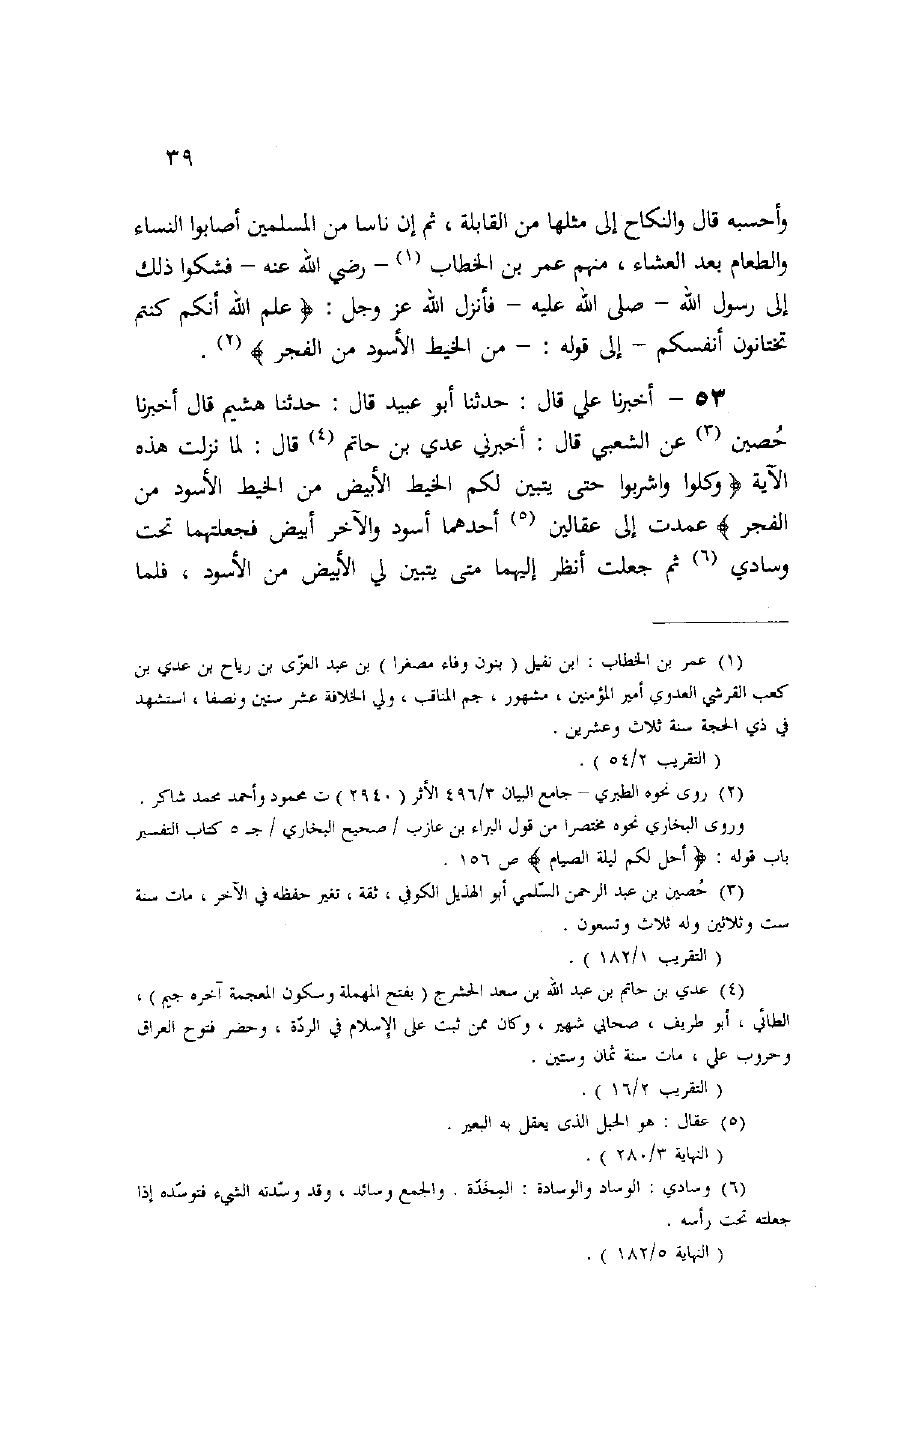 ٣٩
وأحسبه قال والنكاح إلى مثلها من القابلة ، ثم إن ناسا من المسلمين أصابوا النساء
والطعام بعد العشاء ، منهم عمر بن الخطاب (١) – رضي الله عنه – فشكوا ذلك
إلى رسول الله – صلى الله عليه – فأنزل الله عز وجل : ﴿ علم الله أنكم كنتم
تختانون أنفسكم – إلى قوله : – من الخيط الأسود من الفجر ﴾ (٢) .
٥٣ – أخبرنا علي قال : حدثنا أبو عبيد قال : حدثنا هشيم قال أخبرنا
حُصين (٣) عن الشعبي قال : أخبرني عدي بن حاتم (٤) قال : لما نزلت هذه
الآية ﴿ وكلوا واشربوا حتى يتبين لكم الخيط الأبيض من الخيط الأسود من
الفجر ﴾ عمدت إلى عقالين (٥) أحدهما أسود والآخر أبيض فجعلتهما تحت
وسادي (٦) ثم جعلت أنظر إليهما متى يتبين لي الأبيض من الأسود ، فلما
(١) عمر بن الخطاب : ابن نفيل ( بنون وفاء مصغرا ) بن عبد العزّى بن رياح بن عدي بن
كعب القرشي العدوي أمير المؤمنين ، مشهور ، جم المناقب ، ولي الخلافة عشر سنين ونصفا ، استشهد
في ذي الحجة سنة ثلاث وعشرين .
( التقريب ٥٤/٢ ) .
(٢) روى نحوه الطبري – جامع البيان ٤٩٦/٣ الأثر ( ٢٩٤٠ ) ت محمود وأحمد محمد شاكر .
وروى البخاري نحوه مختصرا من قول البراء بن عازب / صحيح البخاري / جـ ٥ كتاب التفسير
باب قوله : ﴿ أحل لكم ليلة الصيام ﴾ ص ١٥٦ .
(٣) حُصين بن عبد الرحمن السّلمي أبو الهذيل الكوفي ، ثقة ، تغير حفظه في الآخر ، مات سنة
ست وثلاثين وله ثلاث وتسعون .
( التقريب ١٨٢/١ ) .
(٤) عدي بن حاتم بن عبد الله بن سعد الحشرج ( بفتح المهملة وسكون المعجمة آخره جيم ) ،
الطائي ، أبو طريف ، صحابي شهير ، وكان ممن ثبت على الإسلام في الردّة ، وحضر فتوح العراق
وحروب علي ، مات سنة ثمان وستين .
( التقريب ١٦/٢ ) .
(٥) عقال : هو الحبل الذى يعقل به البعير .
( النهاية ٢٨٠/٣ ) .
(٦) وسادي : الوساد والوسادة : المِخَدّة . والجمع وسائد ، وقد وسّدته الشيء فتوسّده إذا
جعلته تحت رأسه .
( النهاية ١٨٢/٥ ) .